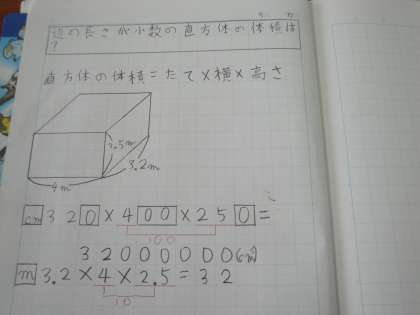 辺の長さが小数の直方体の体積は
?
直方体の体積=たて×横×高さ
2.5m
3.2m
4m
cm 320×400×250=
100
32000000(cm³)
m 3.2×4×2.5=32
10